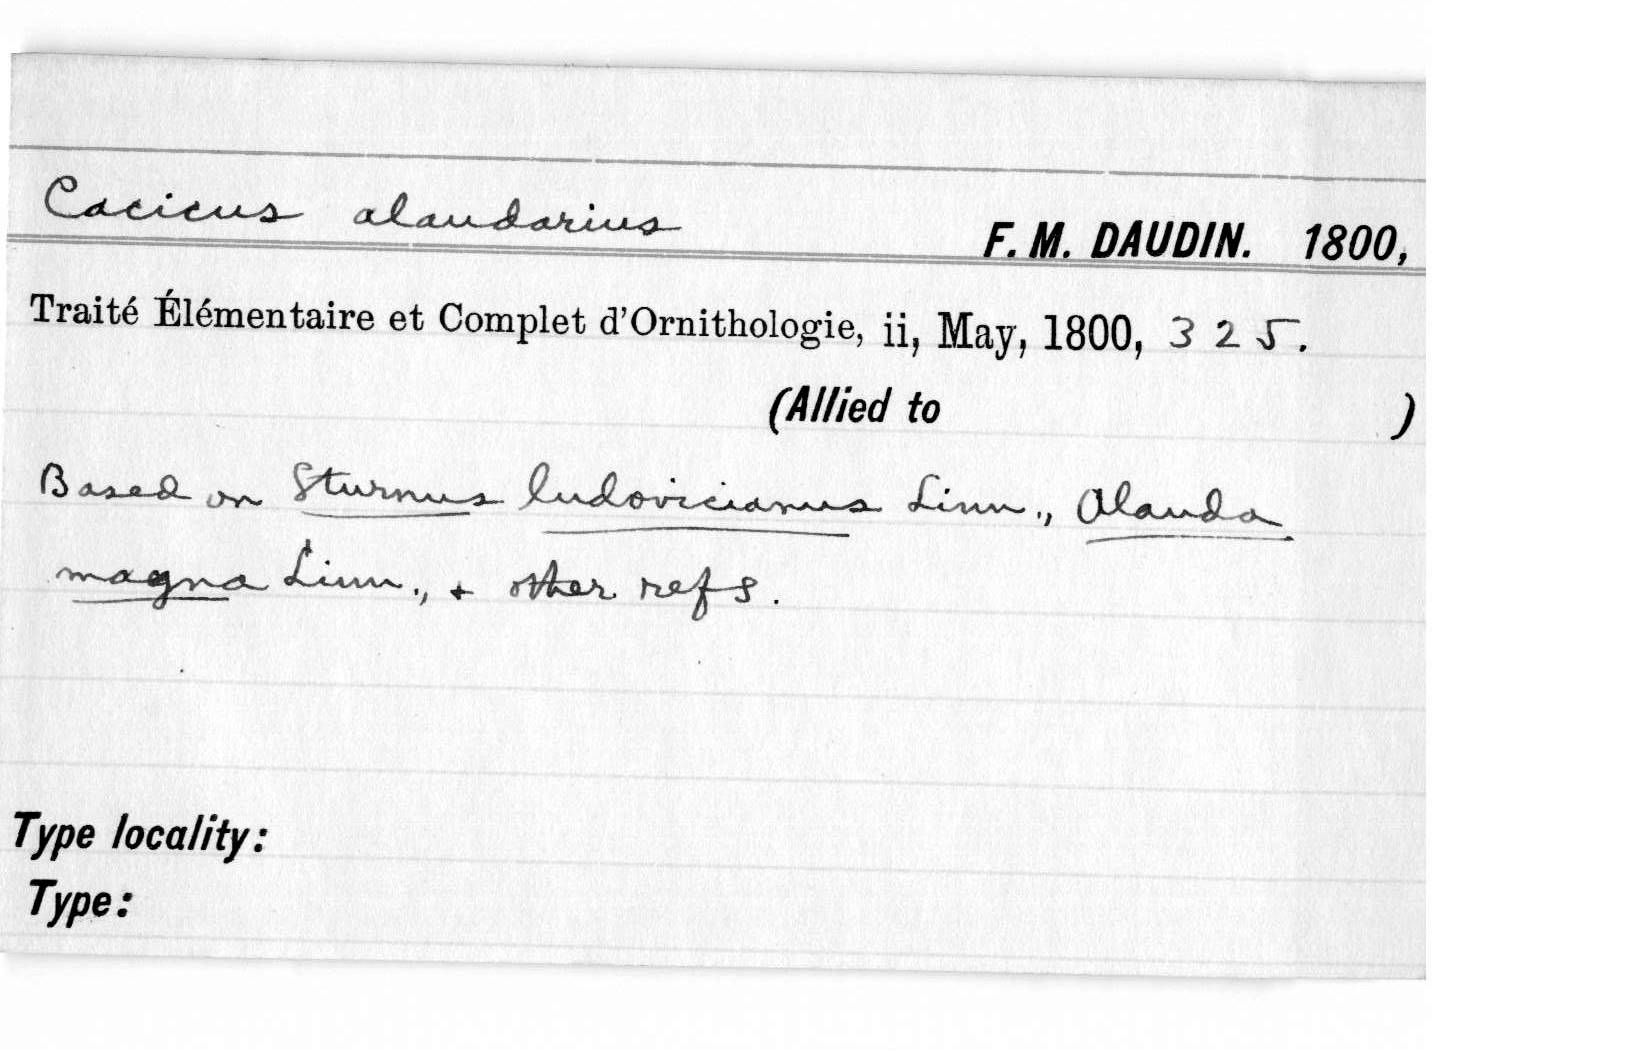 Cacicus alaudarius
F. M. DAUDIN. 1800,
Traité Élémentaire et Complet d'Ornithologie, ii, May, 1800, 325.
(Allied to )
Based on Sturnus ludovicianus Linn., Alauda
magna Linn., + other refs.
Type locality:
Type: